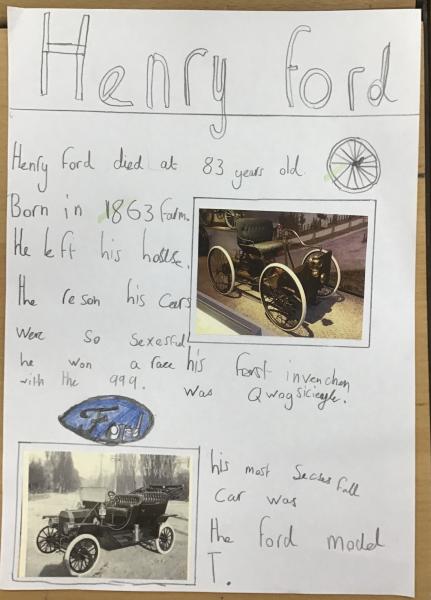 Henry Ford
Henry Ford died at 83 years old.
Born in 1863 farm.
He left his houlse.
the reson his cars
were so sexesful
he won a race
with the 999.
his ferst invenchon
was Qwogsicicyle.
Ford
his most Secsesfull
Car was
the Ford model
T.